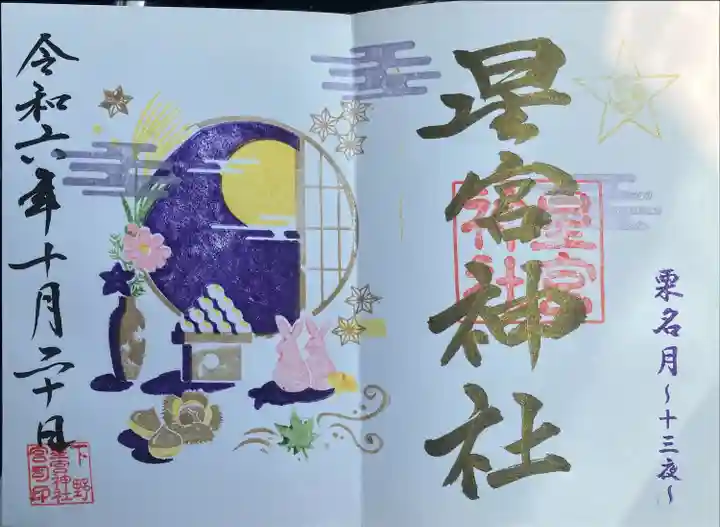 栗名月
～十三夜～
星宮神社
星宮
神社
令和六年十月二十日
下野
星宮神社
宮司印